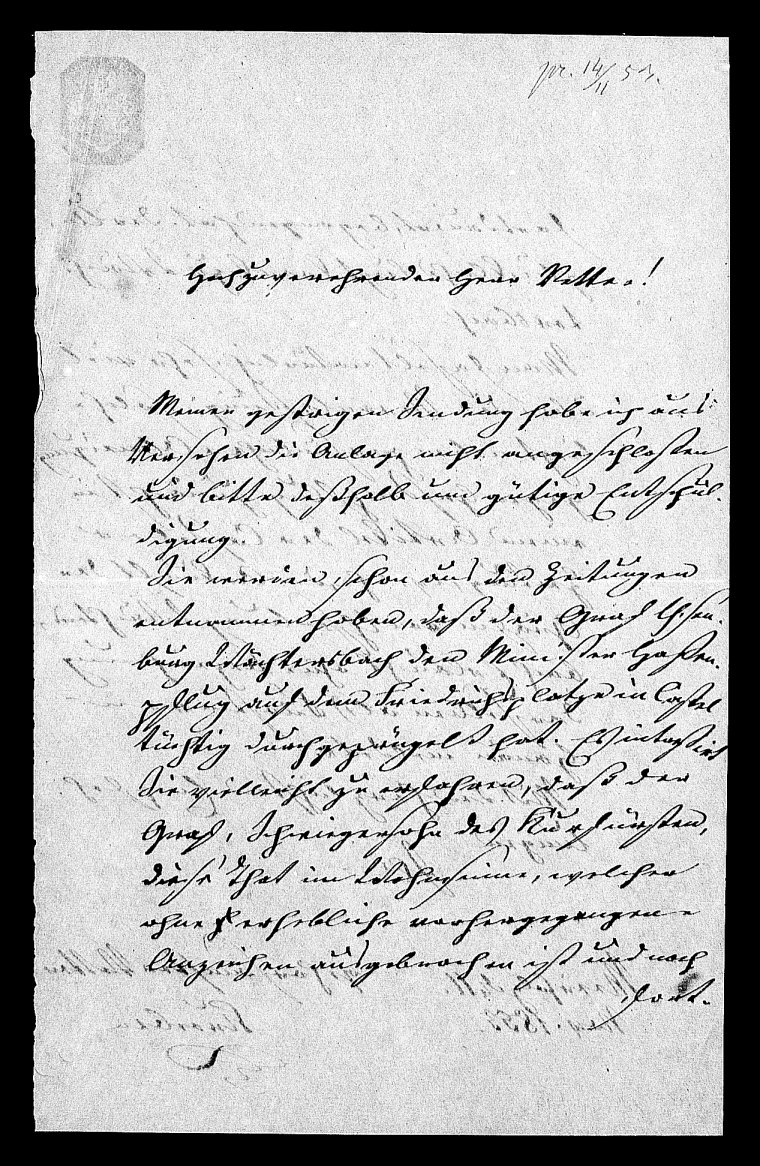 pr. 14/11 53.
Hochzuverehrender Herr Vetter!
Meiner gestrigen Sendung habe ich aus
Versehen die Anlage nicht angeschlossen
und bitte deßhalb um gütige Entschul-
digung.
Sie werden schon aus den Zeitungen
entnommen haben, daß der Graf Ysen-
burg Wächtersbach den Minister Haßen-
pflug auf dem Friedrichsplatze in Cassel
tüchtig durchgeprügelt hat. Es interessirt
Sie vielleicht zu erfahren, daß der
Graf, Schwiegersohn des Kurfürsten,
diese That im Wahnsinne, welcher
ohne erhebliche vorhergegangene
Anzeichen ausgebrochen ist und noch
fort-